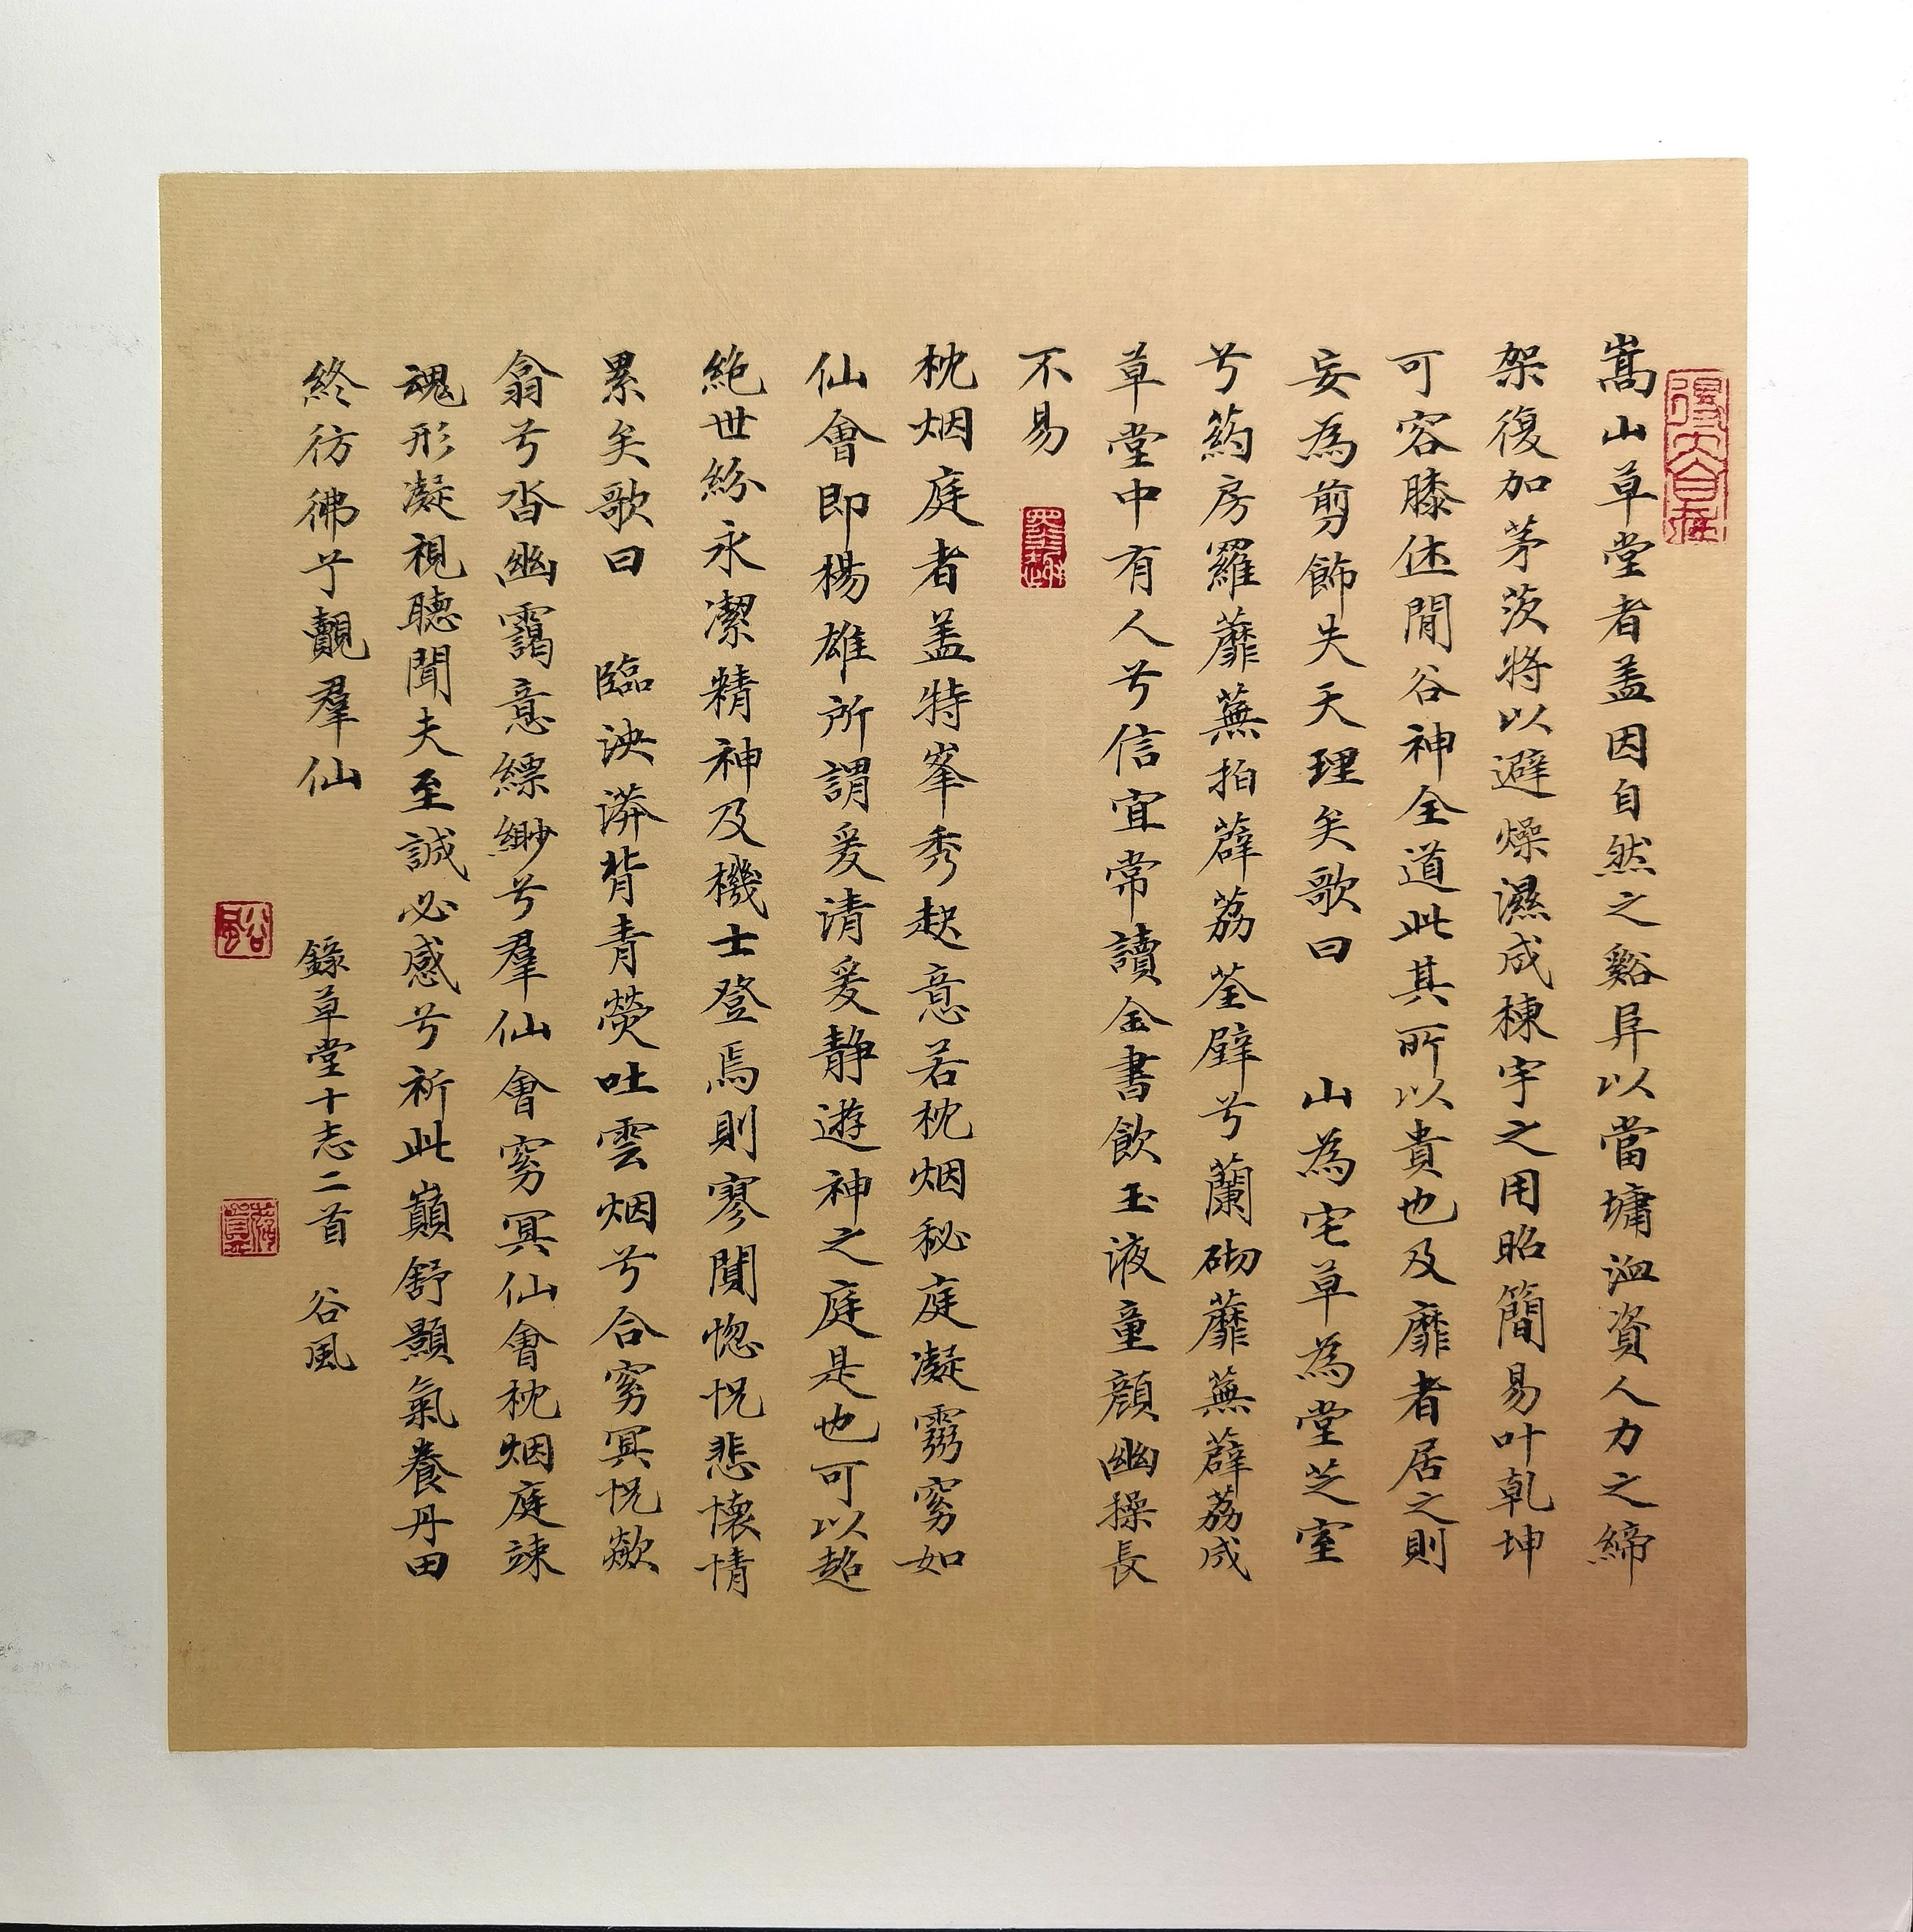 嵩山草堂者盖因自然之谿阜以當墉洫資人力之締
架復加茅茨将以避燥濕成棟宇之用昭簡易叶乾坤
可容膝休閒谷神全道此其所以貴也及靡者居之則
妄為剪飾失天理矣歌曰 山為宅草為堂芝室
兮葯房羅蘼蕪拍薜荔荃壁兮蘭砌蘼蕪薜荔成
草堂中有人兮信宜常讀金書飲玉液童顔幽操長
不易
枕烟庭者盖特峯秀起意若枕烟秘庭凝霛窈如
仙會即楊雄所謂爰清爰静遊神之庭是也可以超
絶世紛永潔精神及機士登焉則寥闃惚怳悲懷情
累矣歌曰 臨泱漭背青熒吐雲烟兮合窈冥怳歘
翕兮沓幽靄意縹緲兮羣仙會窈冥仙會枕烟庭竦
魂形凝視聽聞夫至誠必感兮祈此巔舒顥氣養丹田
終彷彿兮覿羣仙 錄草堂十志二首 谷風
谷風